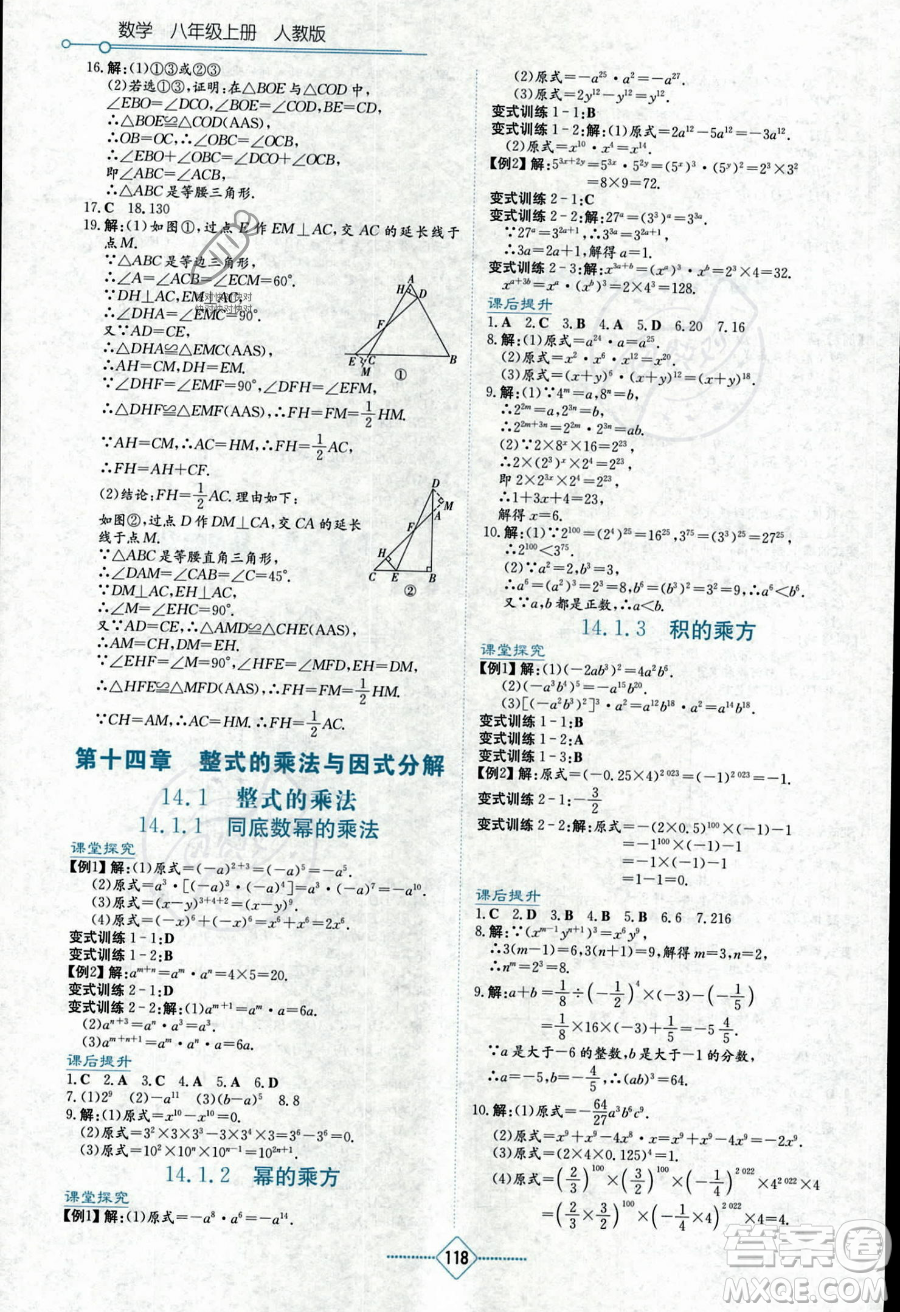 数学 八年级上册 人教版
16. 解:(1)①③或②③
(2)若选①③,证明:在△BOE与△COD中,
∠EBO=∠DCO,∠BOE=∠COD,BE=CD,
∴△BOE≌△COD(AAS),
∴OB=OC,∴∠OBC=∠OCB,
∴∠EBO+∠OBC=∠DCO+∠OCB,
即∠ABC=∠ACB,
∴△ABC是等腰三角形.
17. C 18. 130
19. 解:(1)如图①,过点E作EM⊥AC,交AC的延长线于
点M.
∵△ABC是等边三角形,
∴∠A=∠ACB=∠ECM=60°.
∵DH⊥AC,EM⊥AC,
∴∠AHD=∠CME=90°.
又∵AD=CE,
∴△DHA≌△EMC(AAS),
∴AH=CM,DH=EM.
∵∠DHF=∠EMF=90°,∠DFH=∠EFM,
∴△DHF≌△EMF(AAS),∴FH=FM=1/2HM.
∵AH=CM,∴HM=AC,∴FH=1/2AC,
∴FH=AH+CF.
(2)结论:FH=1/2AC.理由如下:
如图②,过点D作DM⊥CA,交CA的延长
线于点M.
∵△ABC是等腰直角三角形,
∴∠DAM=∠CAB=∠C=45°.
∵DM⊥AC,EH⊥AC,
∴∠M=∠EHC=90°.
又∵AD=CE,∴△DMA≌△CHE(AAS),
∴AM=CH,DM=EH.
∵∠M=∠FHE=90°,∠MFD=∠HFE,
∴△HFE≌△MFD(AAS),∴FH=FM=1/2HM.
∵CH=AM,∴AC=HM,∴FH=1/2AC.
H
A
D
F
E
C
B
M
①
D
M
A
F
H
C
E
B
②
第十四章 整式的乘法与因式分解
14.1 整式的乘法
14.1.1 同底数幂的乘法
课堂探究
【例1】解:(1)原式=(-a)²⁺³=(-a)⁵=-a⁵.
(2)原式=a³·[(-a)³·(-a)²]=a³·(-a⁵)=-a⁸.
(3)原式=(-x)³⁺⁴⁺²=(-x)⁹=-x⁹.
(4)原式=(-x)⁶+(-x)⁶=x⁶+x⁶=2x⁶.
变式训练1-1:D
【例2】解:aᵐ⁺ⁿ=aᵐ·aⁿ=4×5=20.
变式训练2-1:D
变式训练2-2:解:(1)aᵐ⁺¹=aᵐ·a=6a.
(2)aⁿ⁺³=aⁿ·a³=5a³.
(3)aᵐ⁺ⁿ⁺¹=aᵐ·aⁿ·a=6×5×a=30a.
课后提升
1. C 2. A 3. C 4. A 5. A 6. D
7. (1)27 (2)-a¹¹ (3)(a-b)⁶ 8. 8
9. 解:(1)原式=x¹⁰-x¹⁰=0.
(2)原式=3²×3×3³-3×3×3⁴=3⁶-3⁶=0.
(3)原式=10²×10ⁿ×10ⁿ⁻¹=10²ⁿ⁺¹.
14.1.2 幂的乘方
课堂探究
【例1】解:(1)原式=-a⁸·a⁶=-a¹⁴.
(2)原式=-a²⁵·a²=-a²⁷.
(3)原式=2y¹²-y¹²=y¹².
变式训练1-1:B
变式训练1-2:解:(1)原式=2a¹²-5a¹²=-3a¹².
(2)原式=x¹⁰·x⁴=x¹⁴.
【例2】解:5³ˣ⁺²ʸ=5³ˣ·5²ʸ=(5ˣ)³·(5ʸ)²=2³×3²
=8×9=72.
变式训练2-1:C
变式训练2-2:解:27ᵃ=(3³)ᵃ=3³ᵃ,
∵27ᵃ=3²ᵃ⁺¹,∴3³ᵃ=3²ᵃ⁺¹,
∴3a=2a+1,解得a=1.
变式训练2-3:解:xᵃ⁺ᵇ=xᵃ·xᵇ=4×8=32.
x²ᵃ⁺ᵇ=(xᵃ)²·xᵇ=4²×8=128.
课后提升
1. A 2. C 3. B 4. A 5. D 6. 20 7. 16
8. 解:(1)原式=a²⁴·a=a²⁵.
(2)原式=x²·x⁶·x¹²=x²⁰.
(3)原式=(x+y)⁶·(x+y)¹²=(x+y)¹⁸.
9. 解:(1)∵4ᵐ=a,8ⁿ=b,
∴2²ᵐ=a,2³ⁿ=b,
∴2²ᵐ⁺³ⁿ=2²ᵐ·2³ⁿ=ab.
(2)∵2×8ˣ×16=2²³,
∴2×(2³)ˣ×2⁴=2²³,
即2×2³ˣ×2⁴=2²³,
∴1+3x+4=23,
解得x=6.
10. 解:(1)∵2¹⁰⁰=(2⁴)²⁵=16²⁵,3⁷⁵=(3³)²⁵=27²⁵,
∴2¹⁰⁰<3⁷⁵.
(2)∵a²=2,b³=3,
∴a⁶=(a²)³=2³=8,b⁶=(b³)²=3²=9,∴a⁶<b⁶.
又∵a,b都是正数,∴a<b.
14.1.3 积的乘方
课堂探究
【例1】解:(1)(-2ab³)²=4a²b⁶.
(2)(-a³b⁴)⁵=-a¹⁵b²⁰.
(3)[(-a²b³)²]³=(a⁴b⁶)³=a¹²b¹⁸.
变式训练1-1:B
变式训练1-2:A
变式训练1-3:B
【例2】解:原式=(-0.25×4)²⁰²³=(-1)²⁰²³=-1.
变式训练2-1:-3/2
变式训练2-2:解:原式=(-2×0.5)¹⁰⁰×(-2)-1
=-1¹⁰⁰×(-2)-1
=-1×(-2)-1
=1.
课后提升
1. C 2. D 3. D 4. A 5. B 6. 6 7. 216
8. 解:∵(xᵐ⁻¹yⁿ⁺¹)³=x⁶y⁹,
∴3(m-1)=6,3(n+1)=9,解得m=3,n=2,
∴nᵐ=2³=8.
9. 解:a+b=1/8÷(-1/2)⁴×(-4)×(-1/5)
=1/8×16×(-4)×(-1/5)=8/5.
∵a是大于-6的整数,b是大于1的分数,
10. 解:(1)原式=-64/27a³b⁶.
(2)原式=x⁹+x⁹-4x⁹=-2x⁹.
(3)原式=(2×4×0.125)⁴=1.
118
答案圈
MXQE.COM